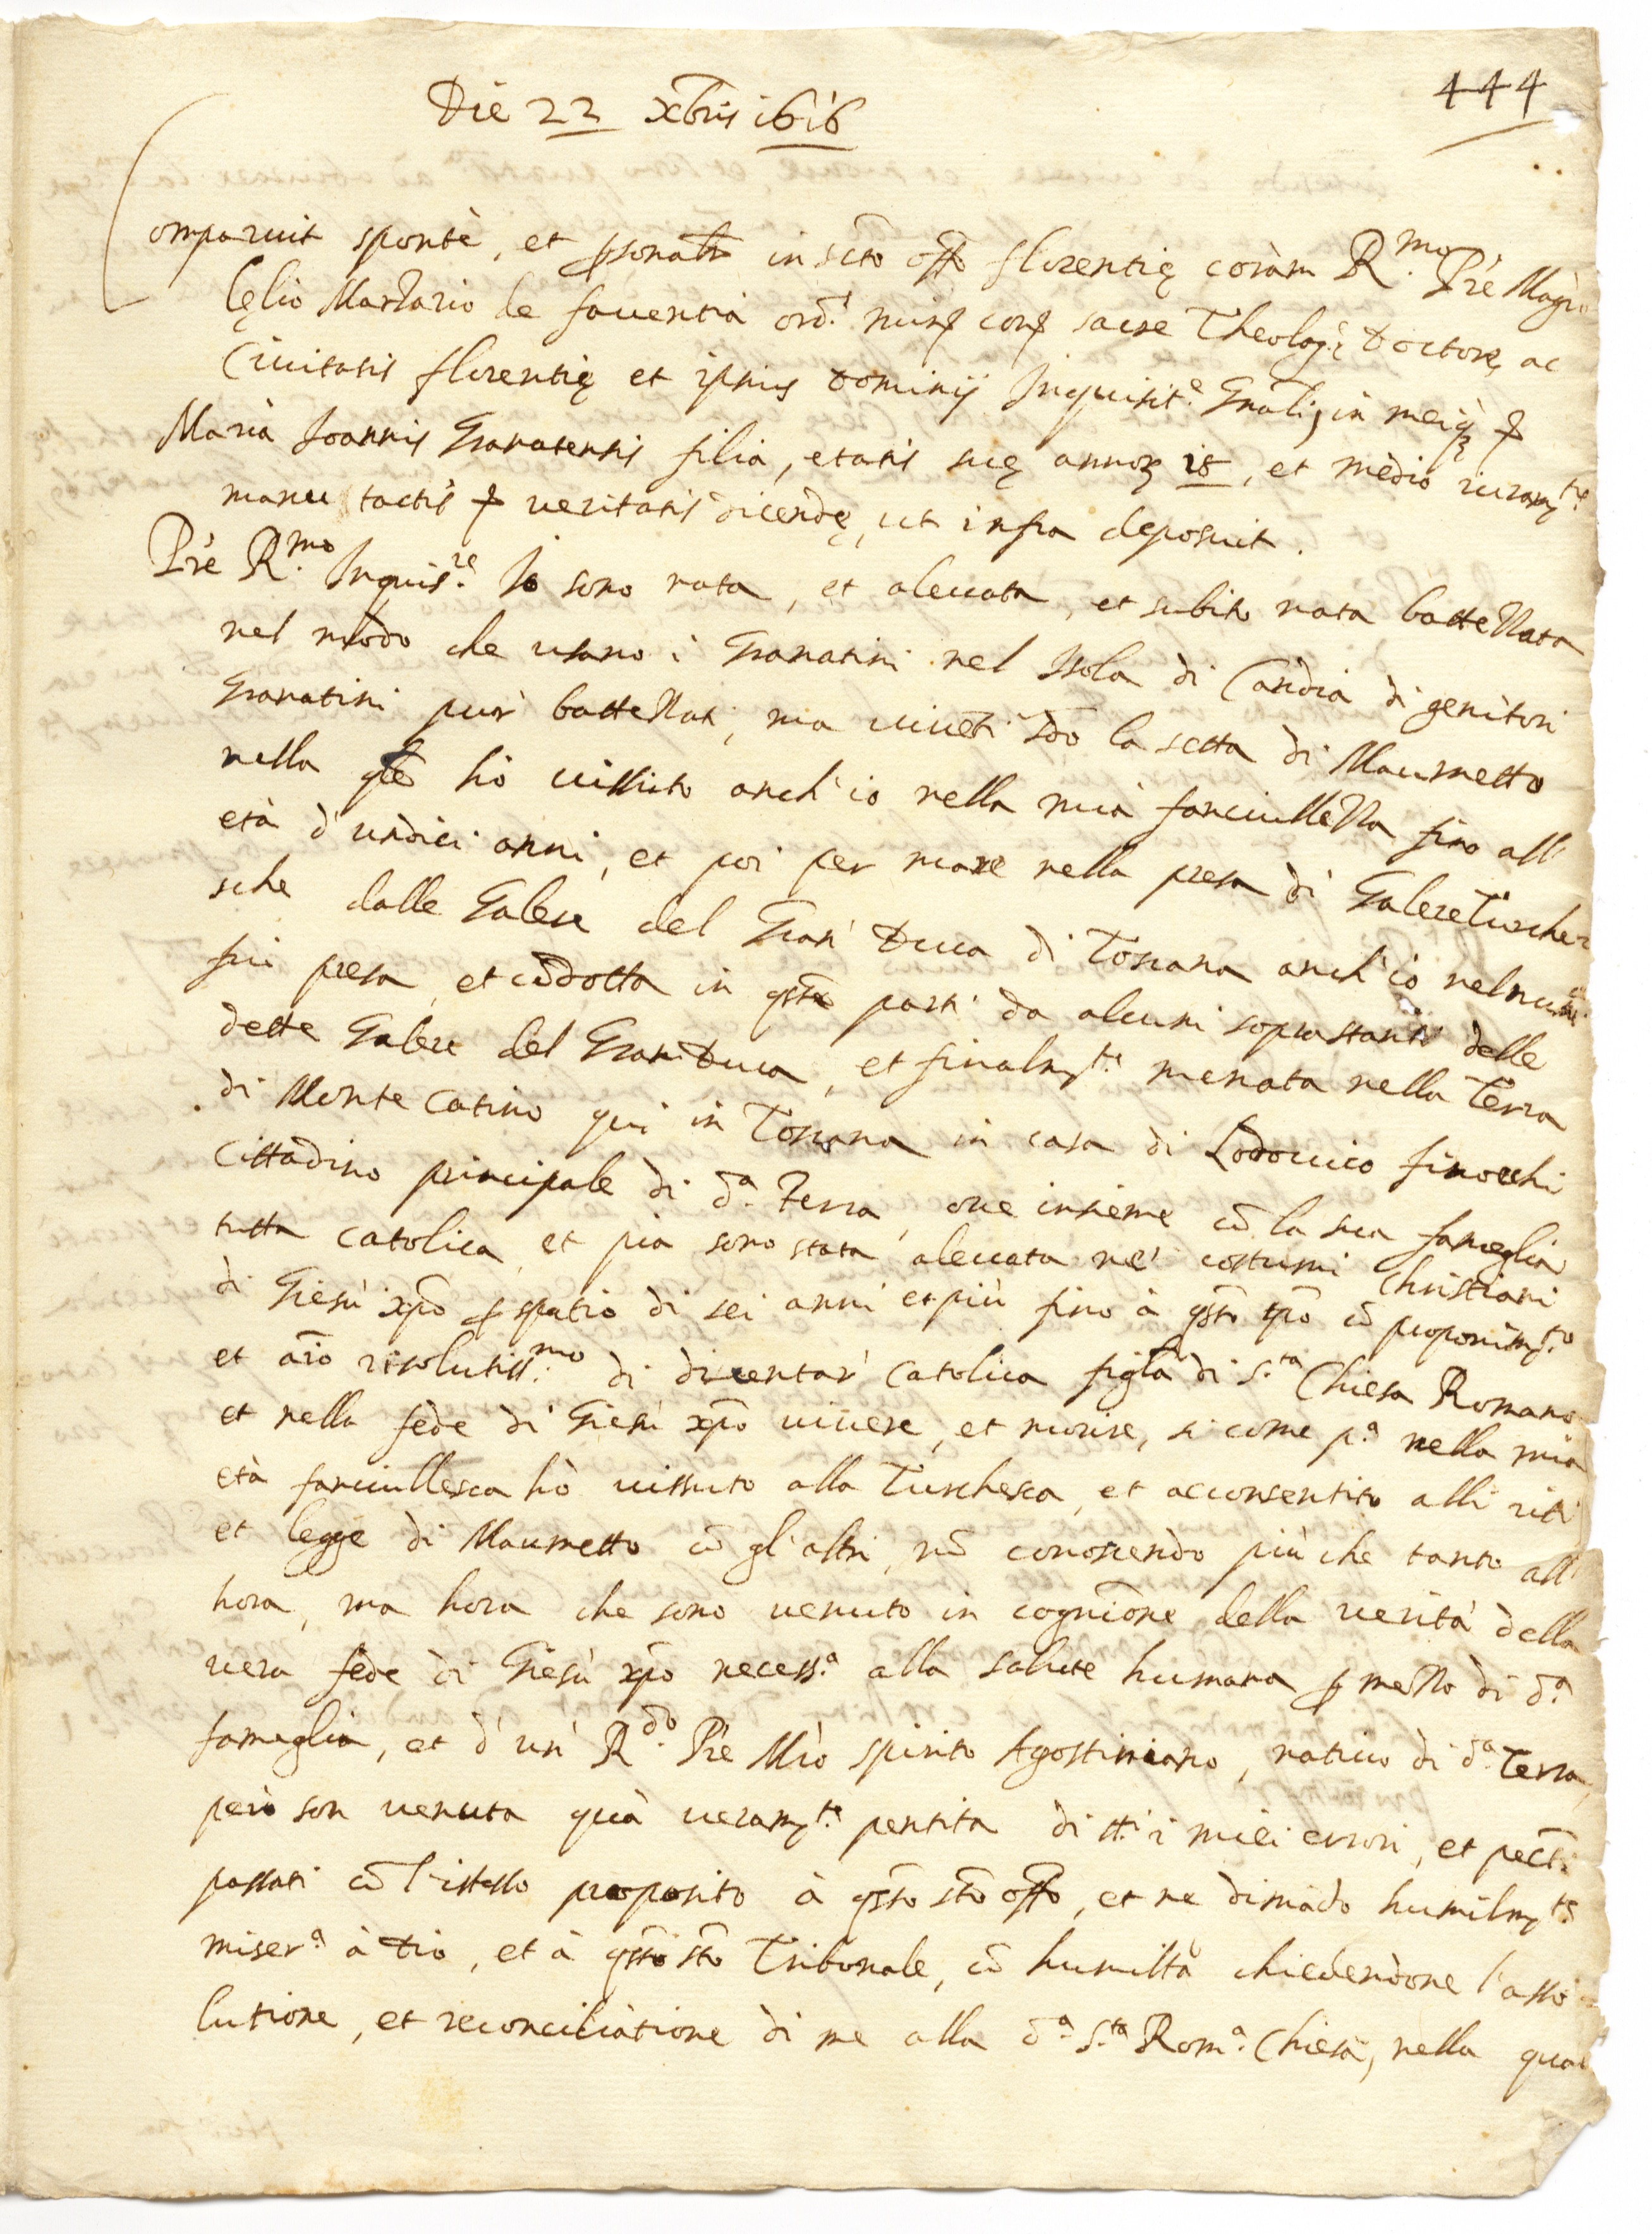 444
Die 22 Xbris 1616
Comparuit spontè, et psonalr in scto offo florentię coràm R.mo Prè Magro
lęlio Marzario de fauentia ord.s min. con. sacre Theolog.ę Doctore, ac
Ciuitatis florentię et ipsius Dominij Inquisit.e Gnali, in meiq
Maria Joannis Granatensis filia, etatis suę annoꝝ 18, et mèdio iuram.to
manu tactis p ueritatis dicendę, ut infra deposuit.
Prè R.mo Inquis.re Io sono nata, et aleuata, et subito nata battezzata
nel modo che usano i Granatini nel Isola di Candia di genitori
Granatini pur battezzati, ma uiuēti 2do la setta di Maumetto
nella qle hò uissuto anch'io nella mia fanciullezza fino all'
età d'undici anni, et poi per mare nella presa di Galere Turche-
sche dalle Galere del Gran Duca di Toscana anch'io nel nu.
fui presa, et cōdotta in qste parti da alcuni soprastanti delle
dette Galere del Gran Duca, et finalm.te menata nella Terra
di Monte Catino qui in Toscana in casa di Lodouico finocchi
Cittadino principale di d.a Terra, oue insieme cō la sua fameglia
tutta catolica, et pia sono stata aleuata ne' costumi Christiani
di Giesù xpō p spatio di sei anni et più fino à qsto tpō cō proponim.to
et aīo risolutiss.mo di diuentar' Catolica figla di s.ta Chiesa Romana
et nella fede di Giesù xpō uiuere, et morire, si come p.a nella mia
età fanciullesca hò uissuto alla Turchesca, et acconsentito alli riti
et legge di Maumetto cō gl'altri, nō conoscendo più che tanto all'
hora, ma hora che sono uenuto in cognitione della uerità della
uera fede di Giesù xpō necess.a alla salute humana p mezzo di d.a
fameglia, et d'un' R.do Prè Mrò spirito Agostiniano, natiuo di d.a Terra,
però son uenuta quà ueram.te pentita di tt.i i miei errori, et pecti
passati cō l'istesso proposito à qsto sto offo, et ne dimādo humilm.te
miser.a à Dio, et à qsto sto Tribunale, cō humiltà chiedendone l'asso-
lutione, et reconciliatione di me alla d.a S.ta Rom.a Chiesa, nella qua